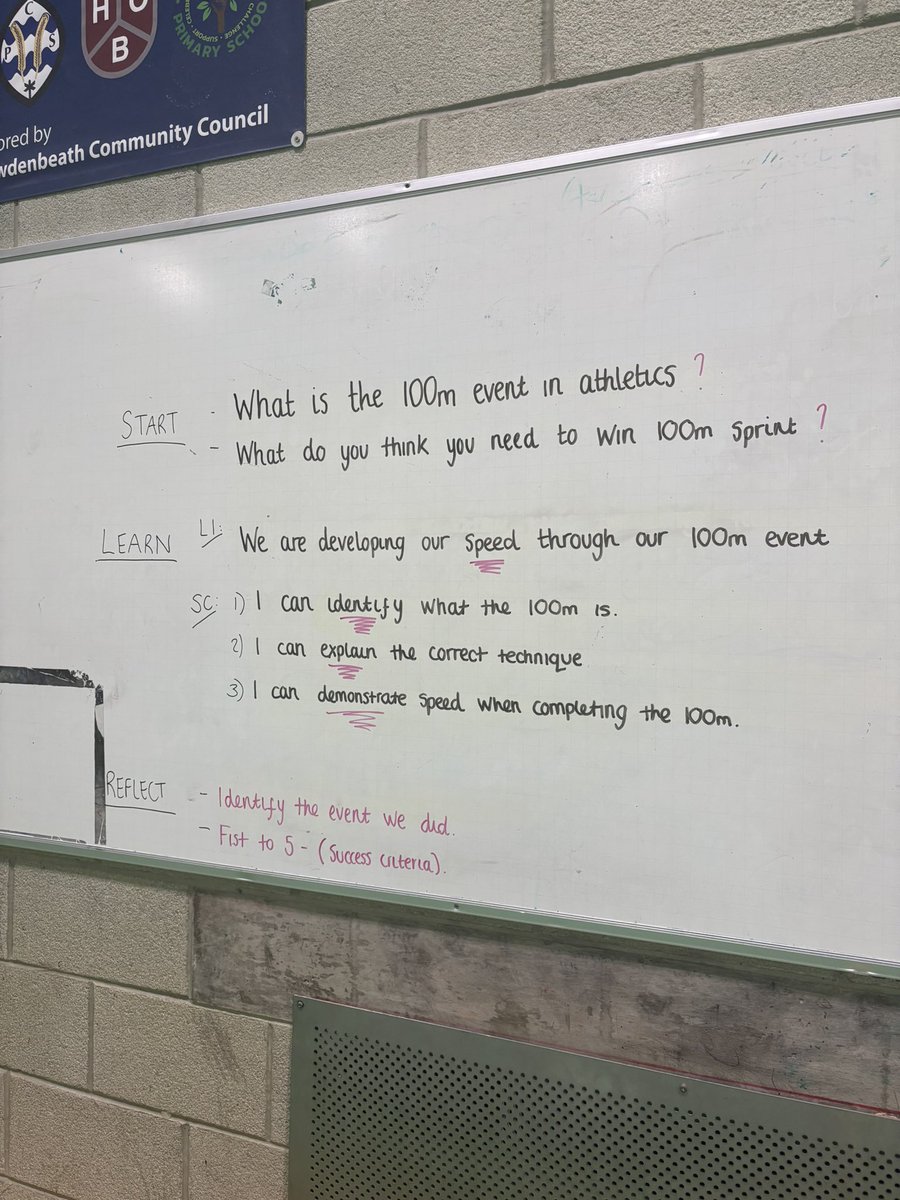 P C S
H O B
CHALLENGE SUPPORT
PRIMARY SCHOOL
ored by
wdenbeath Community Council
START - What is the 100m event in athletics ?
- What do you think you need to win 100m sprint ?
LEARN LI: We are developing our speed through our 100m event
SC: 1) I can identify what the 100m is.
2) I can explain the correct technique
3) I can demonstrate speed when completing the 100m.
REFLECT - Identify the event we did.
- Fist to 5 - (Success criteria).